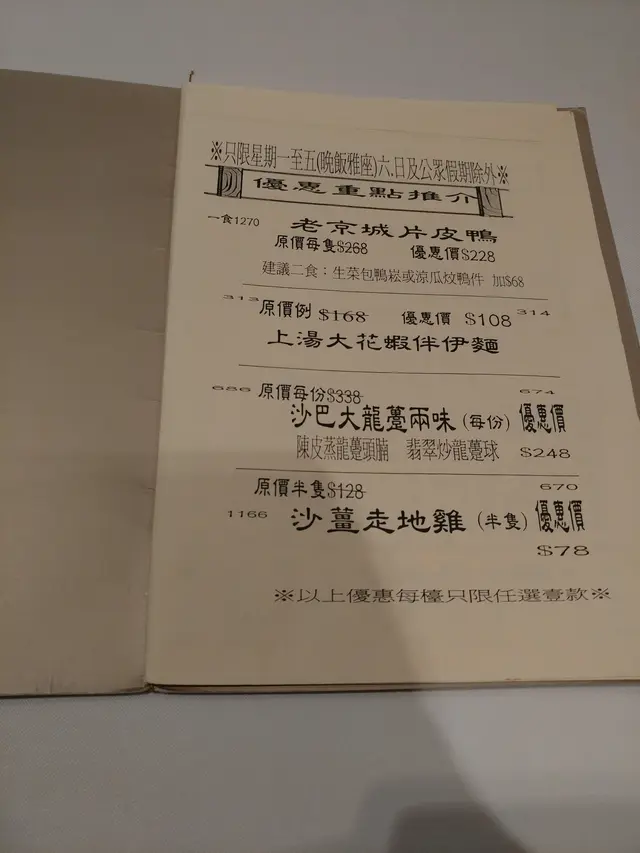 ※只限星期一至五(晚飯雅座)六.日及公眾假期除外※
優惠重點推介
一食1270 老京城片皮鴨
原價每隻$268 優惠價$228
建議二食：生菜包鴨崧或涼瓜炆鴨件 加$68
313 原價例 $168 優惠價 $108 314
上湯大花蝦伴伊麵
686 原價每份$338 674
沙巴大龍躉兩味 (每份) 優惠價
陳皮蒸龍躉頭腩 翡翠炒龍躉球 $248
原價半隻$128 670
1166 沙薑走地雞 (半隻) 優惠價
$78
※以上優惠每檯只限任選壹款※